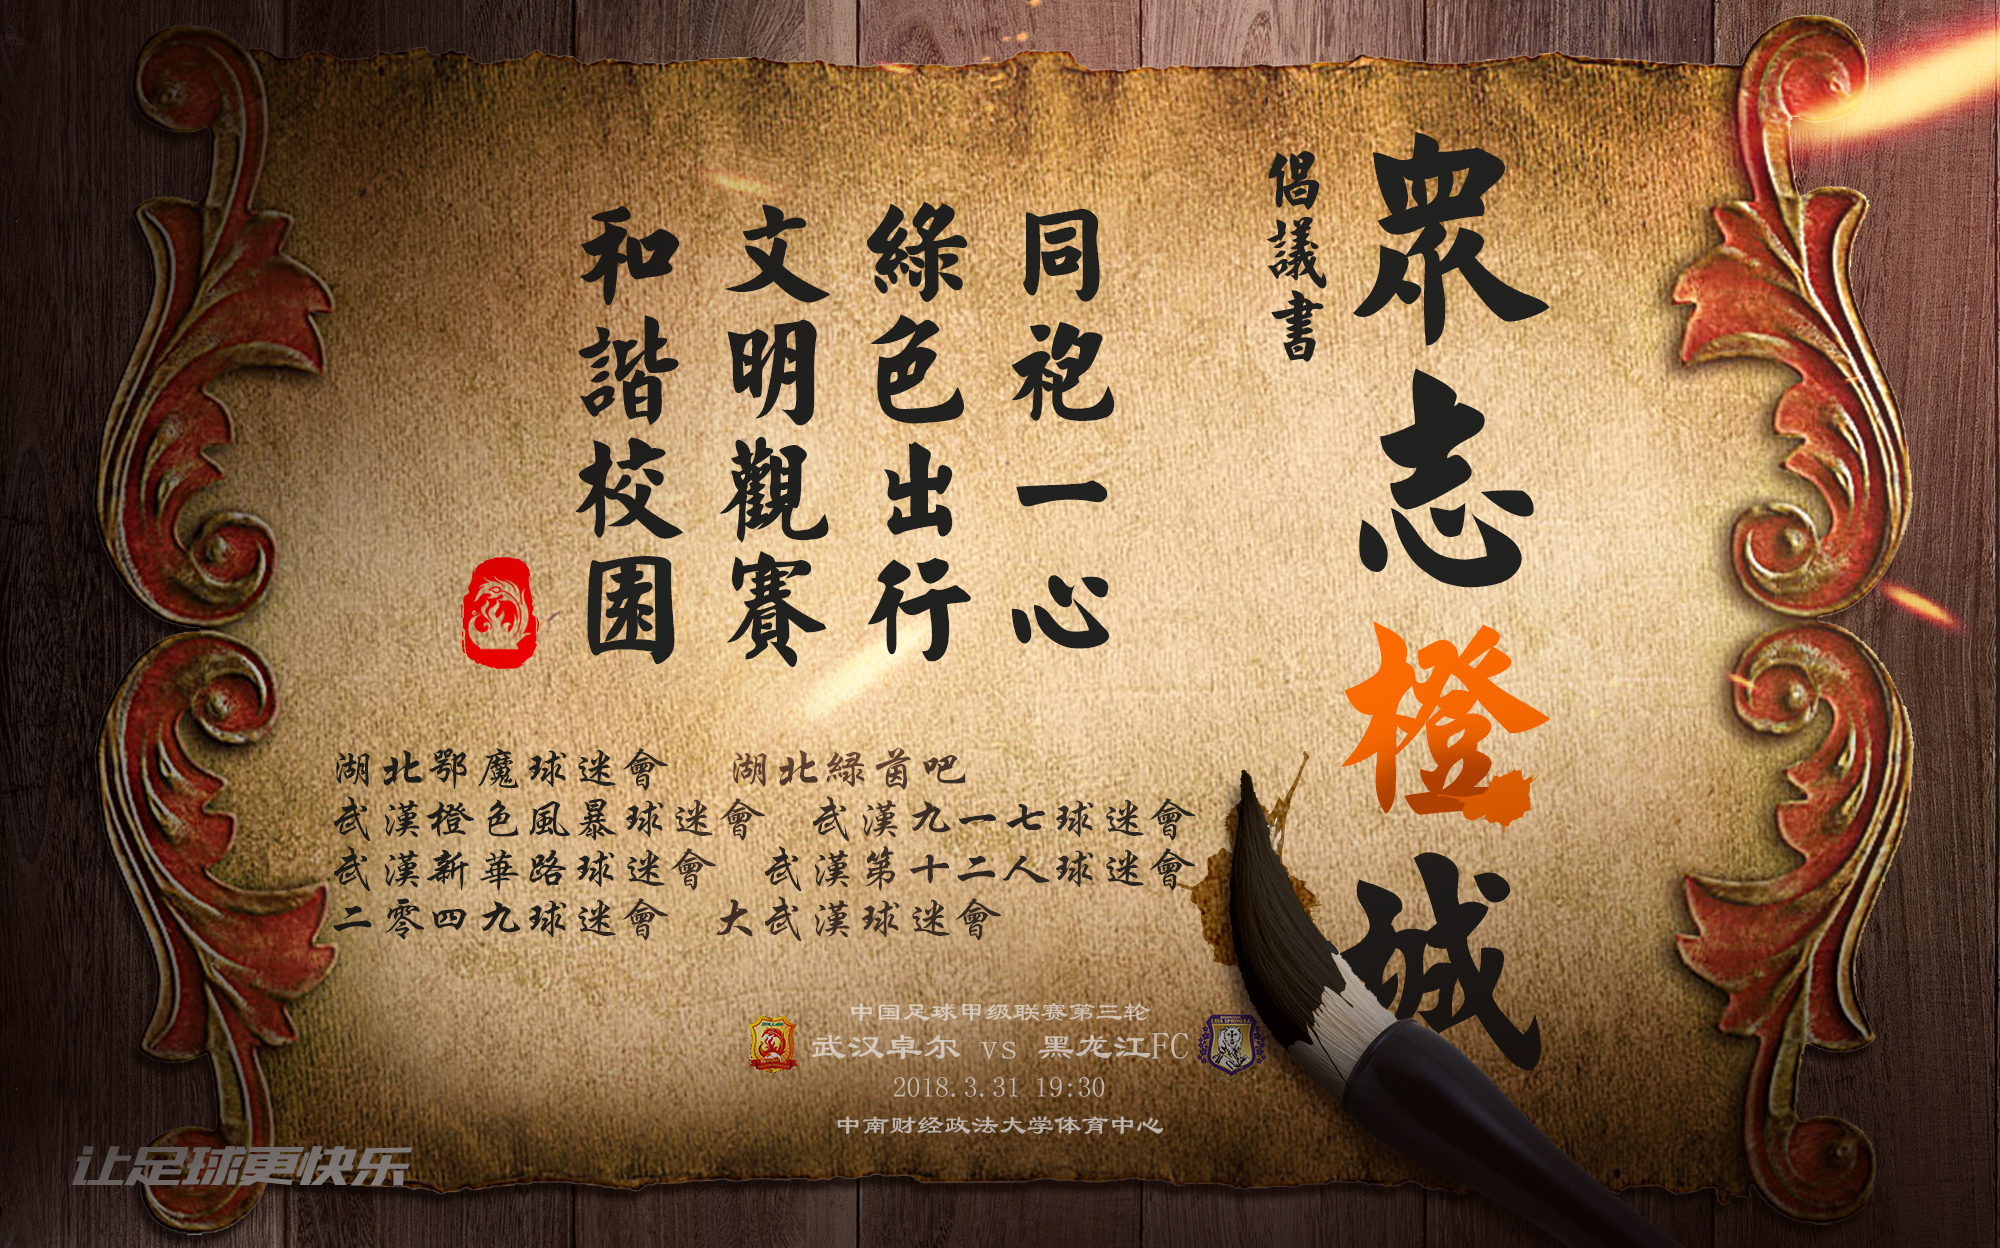 眾志橙城
倡議書
同袍一心
綠色出行
文明觀賽
和諧校園
湖北鄂魔球迷會 湖北綠茵吧
武漢橙色風暴球迷會 武漢九一七球迷會
武漢新華路球迷會 武漢第十二人球迷會
二零四九球迷會 大武漢球迷會
中国足球甲级联赛第三轮
武汉卓尔 vs 黑龙江FC
2018.3.31 19:30
中南财经政法大学体育中心
让足球更快乐